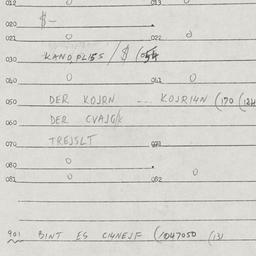 012 0 013 0
020 $-
021 0 022 0
030 KANDPLISS / $ (
040 0 041 0
050 DER KOJRN --- KOJRI4N (170 (124
060 DER CVAJG/K
070 TREJSLT 071
080 0
081 0 082 0
901 BINT ES CI4NEJF (1047050 (131